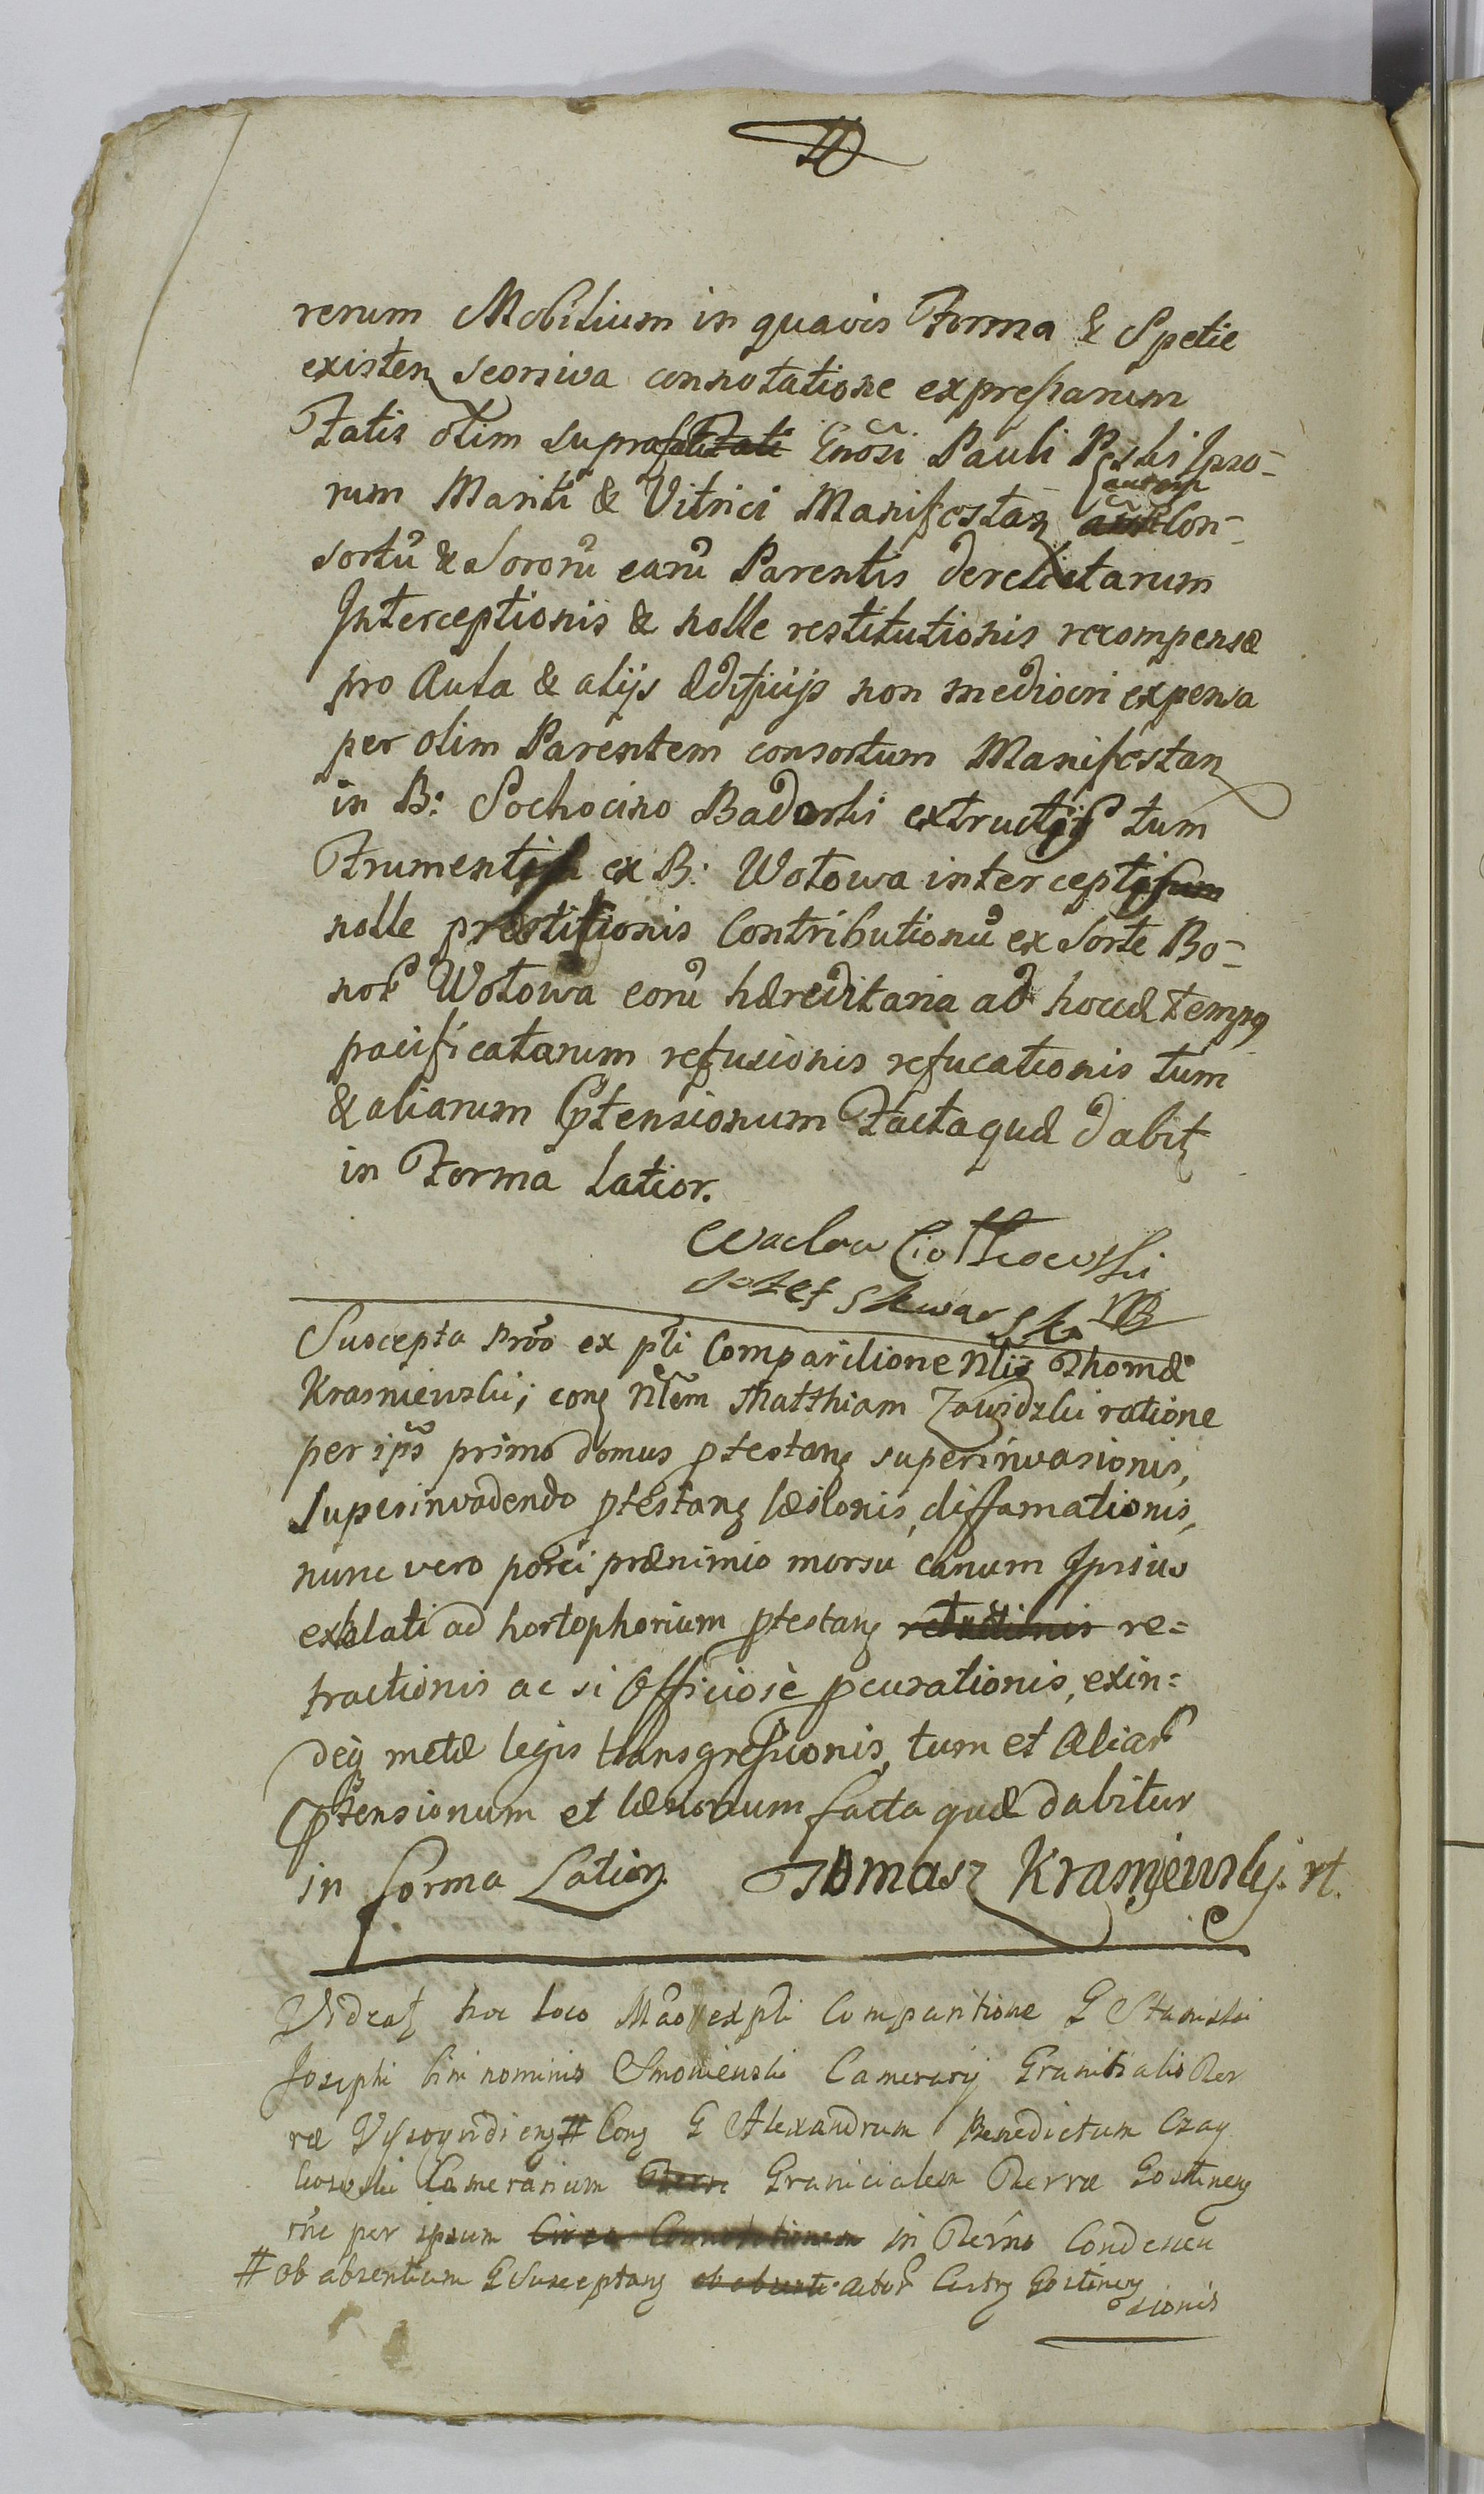 rerum Mobilium in quavis Forma & Spetie
existen seorsiva connotatione expressarum
Fatis olim supra Gnosi Pauli Peski Ipso-
rum Mariti & Vitrici Manifestan autem Con-
sortu & Sororu earu Parentis derelictarum
Interceptionis & nolle restitutionis recompensæ
pro Aula & alijs ædificijs non mediocri expensa
per olim Parentem consortum Manifestan
in B: Sochocino Badorki extructis tum
Frumenti ex B: Wotowa intercepti
nolle præstitionis Contributionu ex Sorte Bo-
nor Wotowa eoru hæreditaria ad hocce tempus
pacificatarum refusionis refucationis tum
& aliarum Prtensionum Facta quæ dabit
in Forma latior.
Waclaw Ciotkowski
Jozef
Suscepta Prõo ex pti Comparitione Nlis Thomæ
Krasniewski; cong Nlem Matthiam Zawidzki ratione
per ips primo domus ptestang superinvasionis,
superinvadendo ptestang læsionis, diffamationis,
nunc vero porci prænimio morsu canum Ipsius
exhalati ad hortophorium ptestang retractionis re=
tractionis ac si officiosè pcurationis, exin=
deq metæ legis transgressionis, tum et aliar
Prtensionum et læsionum facta quæ dabitur
in forma Latior. Tomasz Krasniewski. rt.
Videat hoc loco Mão ex pti Comparitione G Stanislai
Josephi bini nominis Smoniewski Camerarij Granitialis Ter
ræ Vyssogrdieng # Cong G Alexandrum Benedictum Czay
kowski Camerarium Terræ Granicialem Terræ Gostineng
rne per ipsum Circa Connotationem in Termo Condescen
# ob absentiam G Susceptang actor Castrg Gostineng
sionis